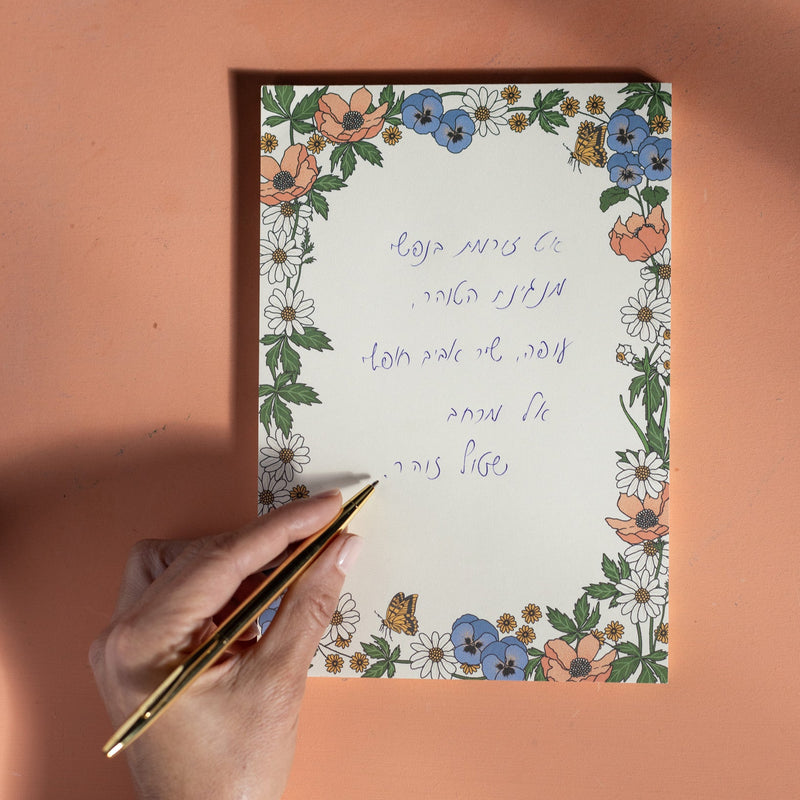 אט זורמת בנפשי
מנגינת הטוהר,
עופה, שיר אביב חופשי
אל מרחב
שטוף זוהר.